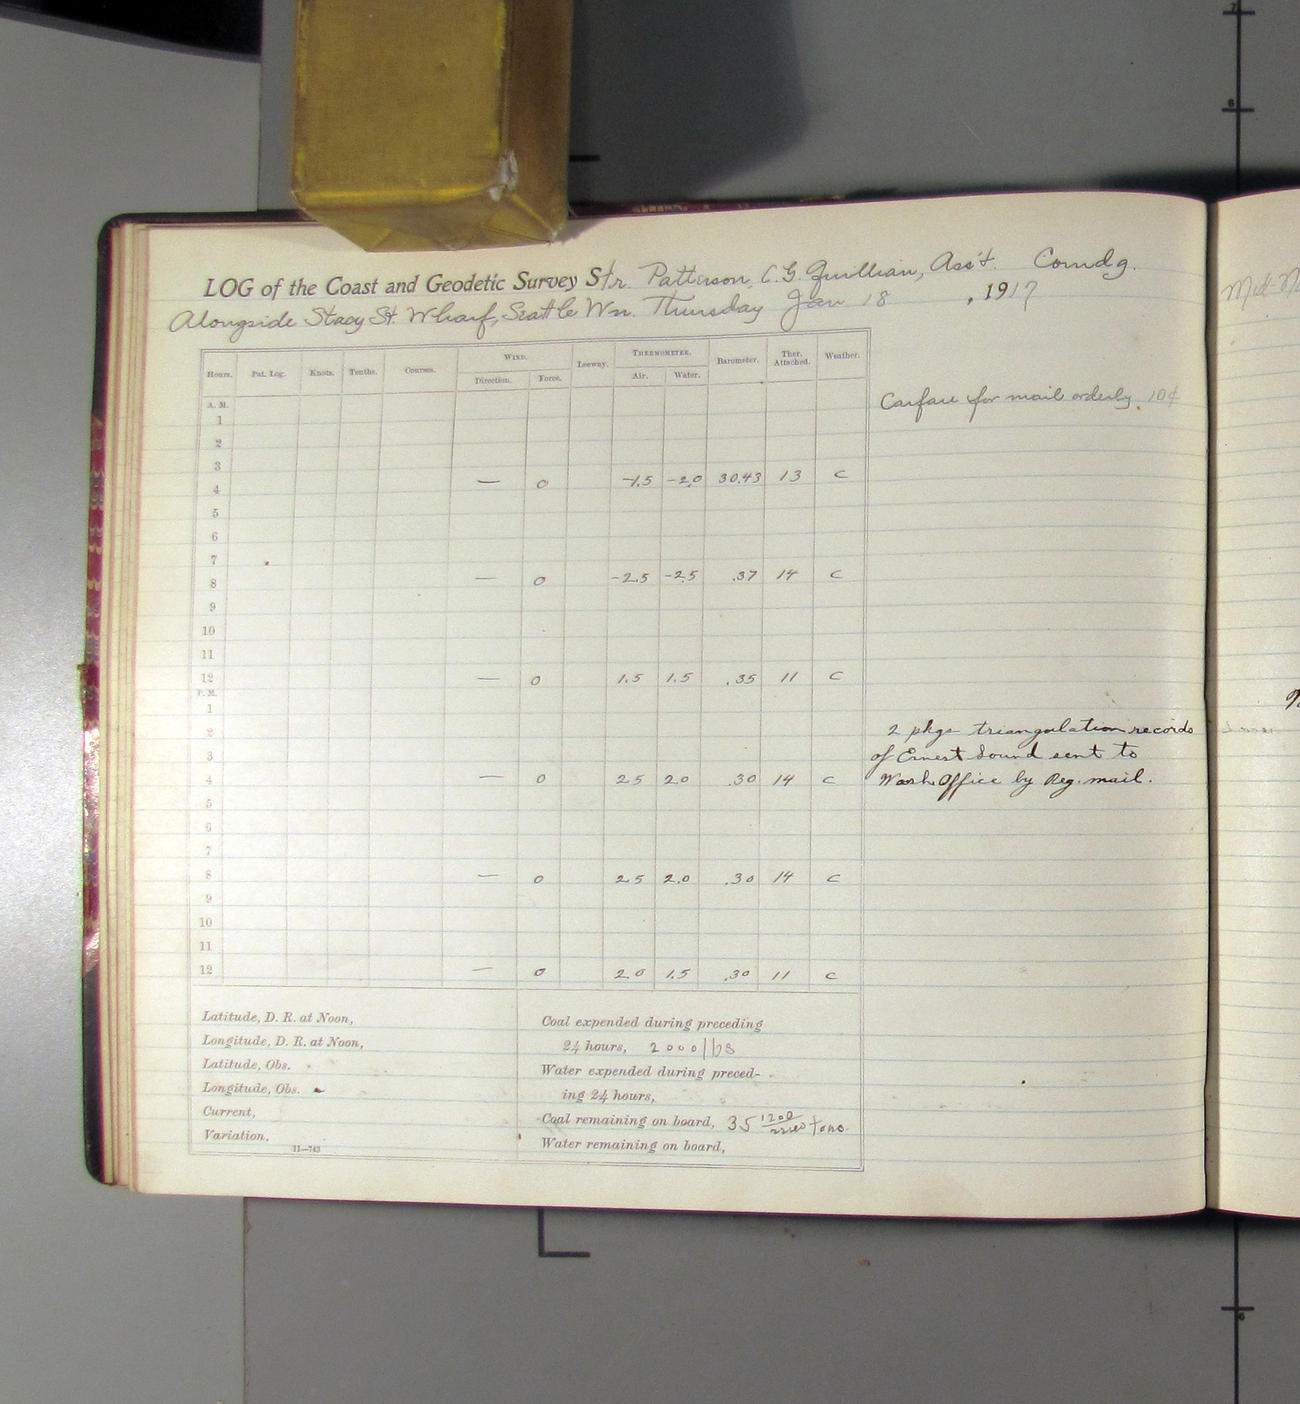 LOG of the Coast and Geodetic Survey Str. Patterson, C.G. Quillian, Ass't. Comdg.
Alongside Stacy St. Wharf, Seattle Wn. Thursday Jan 18, 1917
Hours. Pat. Log. Knots. Tenths. Courses. WIND. Direction. Force. Leeway. THERMOMETER. Air. Water. Barometer. Ther. Attached. Weather.
A. M.
Carfare for mail orderly. 10¢
1
2
3
4 — 0 -1.5 -2.0 30.43 13 c
5
6
7
8 — 0 -2.5 -2.5 .37 14 c
9
10
11
12 — 0 1.5 1.5 .35 11 c
P. M.
1
2 2 pkgs triangulation records
3 of Ernest Sound sent to
4 — 0 2.5 2.0 .30 14 c Wash Office by Reg. mail.
5
6
7
8 — 0 2.5 2.0 .30 14 c
9
10
11
12 — 0 2.0 1.5 .30 11 c
Latitude, D. R. at Noon,
Longitude, D. R. at Noon,
Latitude, Obs.
Longitude, Obs.
Current,
Variation,
11—743
Coal expended during preceding
24 hours, 2000 lbs
Water expended during preced-
ing 24 hours,
Coal remaining on board, 35 1200/2240 tons.
Water remaining on board,